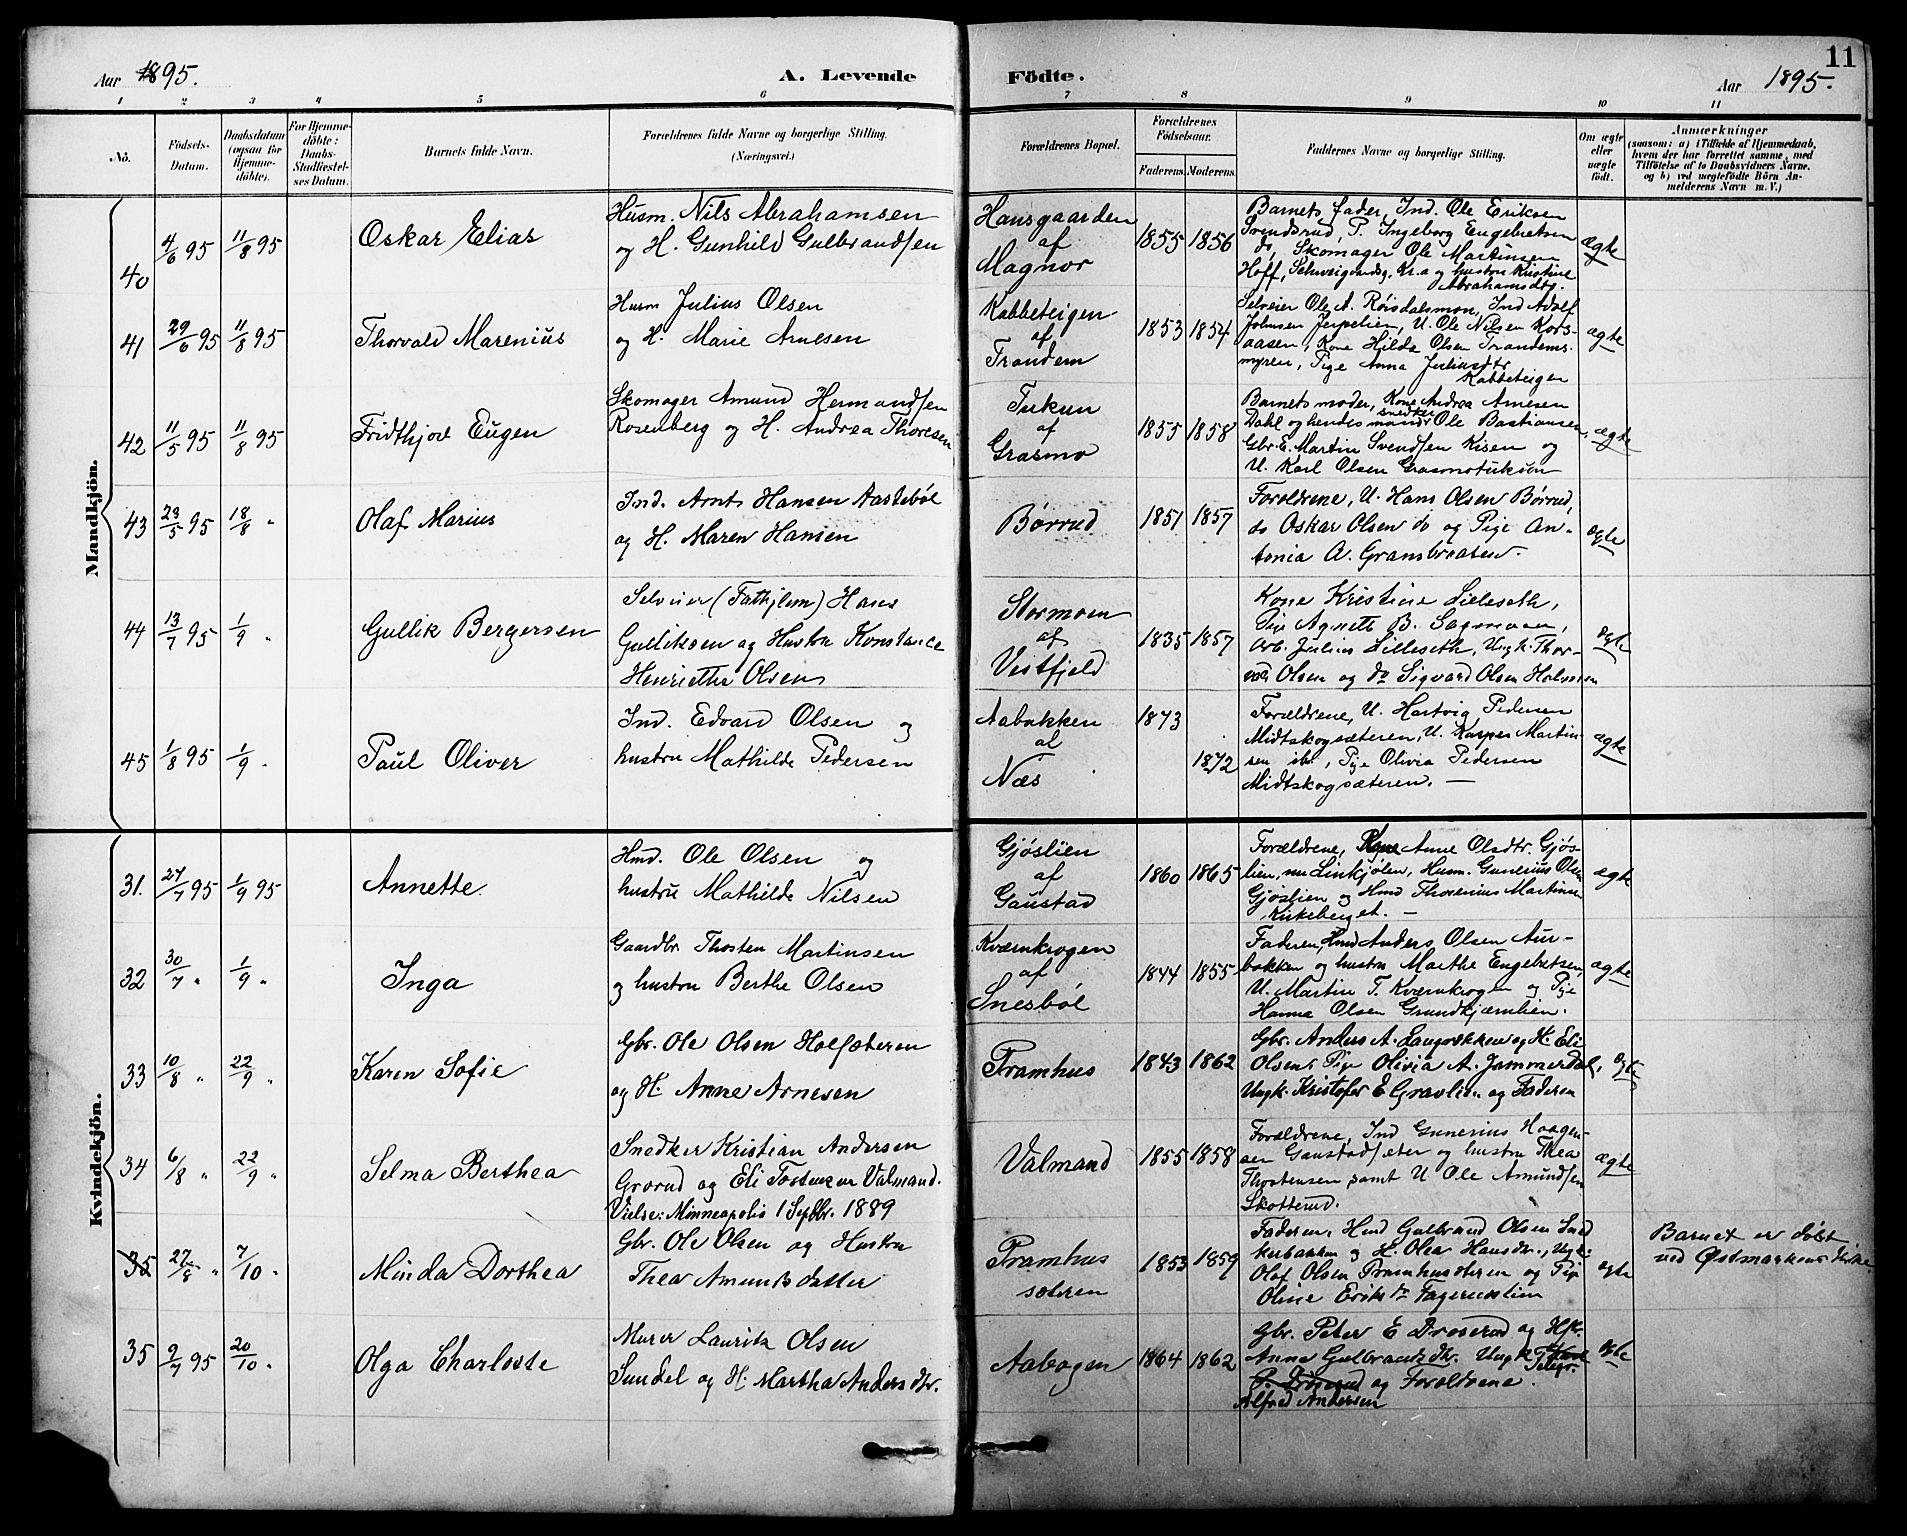 11
Aar 1895.
A. Levende Födte.
Aar 1895.
1 2 3 4 5 6 7 8 9 10 11
No.
Födsels-Datum.
Daabsdatum (ogsaa for Hjemme-döbte).
For Hjemme-döbte: Daabs-Stadfæstel-ses Datum.
Barnets fulde Navn.
Forældrenes fulde Navne og borgerlige Stilling.
(Næringsvei.)
Forældrenes Bopæl.
Forældrenes Födselsaar.
Faderens. Moderens.
Faddernes Navne og borgerlige Stilling.
Om ægte eller uægte födt.
Anmærkninger
(saasom: a) i Tilfælde af Hjemmedaab,
hvem der har forrettet samme, med
Tilföielse af to Daabsvidners Navne.
og b) ved uægtefödte Börn An-
melderens Navn m. V.)
Mandkjön.
40 4/6 95 11/8 95 Oskar Elias
Husm. Nils Abrahamsen
og H. Gunhild Gulbrandsen
Hansgaarden
af
Magnor
1855 1856
Barnets fader, Ind. Ole Eriksen
Svendsrud, P. Ingeborg Engebretsen
do, Skomager Ole Martinsen
Hoff, Kr.a og hustru Kristine
Abrahamsdtg.
ægte
41 29/6 95 11/8 95 Thorvald Marenius
Husm Julius Olsen
og H. Marie Arnesen
Kabbeteigen
af
Trandem
1853 1854
Selveier Ole A. Röisdalsmon, Ind Adolf
Johnsen Jerpelien, U. Ole Nilsen Kors-
aasen, Kone Hilda Olsen Trandems-
myren, Pige Anna Juliusdtr
Kabbeteigen
ægte
42 11/5 95 11/8 95 Fridthjov Eugen
Skomager Amund Hermandsen
Rosenberg og H. Andrea Thoresen
Tukun
af
Grasmo
1855 1858
Barnets moder, Kone Andrea Arnesen
Dahl og hendes mand snedker Ole Bastiansen,
Gbr. E. Martin Svendsen Kisen og
U. Karl Olsen
ægte
43 23/5 95 18/8 " Olaf Marius
Ind. Arnt Hansen Aastebøl
og H. Maren Hansen
Börrud
1851 1857
Forældrene, U. Hans Olsen Börrud,
do Oskar Olsen do og Pige An-
tonia A. Gransbraaten.
ægte
44 13/7 95 1/9 " Gullik Bergersen
Selveier (Fattiglem) Hans
Gulliksen og Hustru Konstance
Henriette Olsen
Stormoen
af
Vestfjeld
1835 1857
Kone Kristine Lilleseth,
Pige Agnete B. Sagmoen,
Arb. Julius Lilleseth, Ungk. Thor-
vald Olsen og do Sigvard Olsen Holmsen
ægte
45 1/8 95 1/9 " Paul Oliver
Ind. Edvard Olsen og
hustru Mathilde Pedersen
Aabakken
af
Næs
1873 1872
Forældrene, U. Hartvig Pedersen
Midtskogsæteren, U. Kasper Martin-
sen ibd, Pige Olivia Pedersen
Midtskogsæteren. —
ægte
Kvindekjön.
31. 27/7 95 1/9 95 Annette
Hmd. Ole Olsen og
hustru Mathilde Nilsen
Gjöslien
af
Gaustad
1860 1865
Forældrene, Kone Anne Olsdtr. Gjös-
lien, nu Linkjölen, Husm. Gunerius Olsen
Gjöslien og Hmd Thorenius Martinsen
Kirkeberget. —
ægte
32 30/7 " 1/9 " Inga
Gaardbr Thosten Martinsen
og hustru Berthe Olsen
Kværnkrogen
af
Snesböl
1844 1855
Faderen, Hmd Anders Olsen Aur-
bakken og hustru Marthe Engebretsen,
U. Martin T. Kværnkrogen og Pige
Hanna Olsen Grundkjærnlien.
ægte
33 10/8 " 22/9 " Karen Sofie
Gbr. Ole Olsen Holsæteren
og H. Anne Arnesen
Framhus
1843 1862
Gbr. Anders A. Langrækken og H. Eli
Olsen, Pige Olivia A. Jammerdal,
Ungk. Kristofer E Gravlien og Faderen
ægte
34 6/8 " 22/9 " Selma Berthea
Snedker Kristian Andersen
Grorud og Eli Tostensen Valmand.
Vielse: Minneapolis 1 Septbr. 1889
Valmand
1855 1858
Forældrene, Ind Gunerius Haagen-
sen Gaustadseter og hustru Thea
Thostensen samt U Ole Amundsen
Skotterud.
ægte
35 27/8 " 7/10 " Minda Dorthea
Gbr. Ole Olsen og Hustru
Thea Amundsdatter
Framhus
sæteren
1853 1859
Faderen, Hmd Gulbrand Olsen
og H. Olea Hansdtr., Ungk.
Olaf Olsen Framhussæteren og Pige
Oline Eriks do
ægte
Barnet er döbt
ved Østmarkens Kirke
35 9/7 95 20/10 " Olga Charlotte
Murer Lauritz Olsen
Sundel og H. Martha Andersdtr.
Aabogen
1864 1862
Gbr. Peter E Droserud og Hfr.
Anna Gulbrandsdtr. Ungk. Telegr.
og Forældrene.
Alfred Andersen
ægte